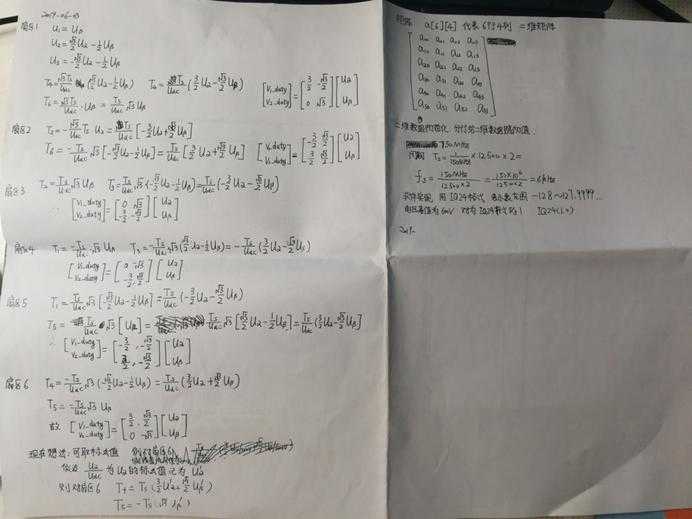 2019-06-03
扇区1 U₁ = Uβ
U₂ = √3/2 Uα - 1/2 Uβ
U₃ = -√3/2 Uα - 1/2 Uβ
T₄ = √3Ts/Udc (√3/2 Uα - 1/2 Uβ) T₄ = Ts/Udc (3/2 Uα - √3/2 Uβ)
T₆ = √3Ts/Udc · Uβ = Ts/Udc √3 Uβ
[V₁_duty V₂_duty] = [3/2 -√3/2 0 √3] [Uα Uβ]
扇区2 T₂ = -√3 Ts/Udc U₂ = Ts/Udc [-3/2 Uα + √3/2 Uβ]
T₆ = -Ts/Udc √3 [-√3/2 Uα - 1/2 Uβ] = Ts/Udc [3/2 Uα + √3/2 Uβ]
[V₁_duty V₂_duty] = [-3/2 √3/2 3/2 √3/2] [Uα Uβ]
扇区3 T₂ = Ts/Udc √3 Uβ T₃ = Ts/Udc √3 (-√3/2 Uα - 1/2 Uβ) = Ts/Udc (-3/2 Uα - √3/2 Uβ)
∴ [V₁_duty V₂_duty] = [0 √3 -3/2 -√3/2] [Uα Uβ]
扇区4 T₁ = -Ts/Udc √3 Uβ T₃ = -Ts/Udc √3 (√3/2 Uα - 1/2 Uβ) = -Ts/Udc (3/2 Uα - √3/2 Uβ)
[V₁_duty V₂_duty] = [0 -√3 -3/2, √3/2] [Uα Uβ]
扇区5 T₁ = Ts/Udc √3 [-√3/2 Uα - 1/2 Uβ] = Ts/Udc (-3/2 Uα - √3/2 Uβ)
T₅ = Ts/Udc √3 [√3/2 Uα - 1/2 Uβ] = Ts/Udc (3/2 Uα - √3/2 Uβ)
∴ [V₁_duty V₂_duty] = [-3/2, -√3/2 3/2, -√3/2] [Uα Uβ]
扇区6 T₄ = -Ts/Udc √3 (-√3/2 Uα - 1/2 Uβ) = Ts/Udc (3/2 Uα + √3/2 Uβ)
T₅ = -Ts/Udc √3 Uβ
故 [V₁_duty V₂_duty] = [3/2, √3/2 0 -√3] [Uα Uβ]
现在想法: 可取标幺值
为 Uα 的标幺值 记为 Uα'
则对扇区6 T₄ = Ts (3/2 Uα' + √3/2 Uβ')
T₅ = -Ts (√3 Uβ')
矩阵 a[6][4] 代表 6行4列 二维矩阵
a₀₀ a₀₁ a₀₂ a₀₃
a₁₀ a₁₁ a₁₂ a₁₃
a₂₀ a₂₁ a₂₂ a₂₃
a₃₀ a₃₁ a₃₂ a₃₃
a₄₀ a₄₁ a₄₂ a₄₃
a₅₀ a₅₁ a₅₂ a₅₃
二维数组初始化
150MHz
周期 Ts = 1/150MHz × 12500 × 2 =
fs = 150MHz/12500×2 = 150×10⁶/12500×2 = 6kHz
用 IQ24 格式 表示最大范围 -128~127.9999...
IQ24(1.0)
201